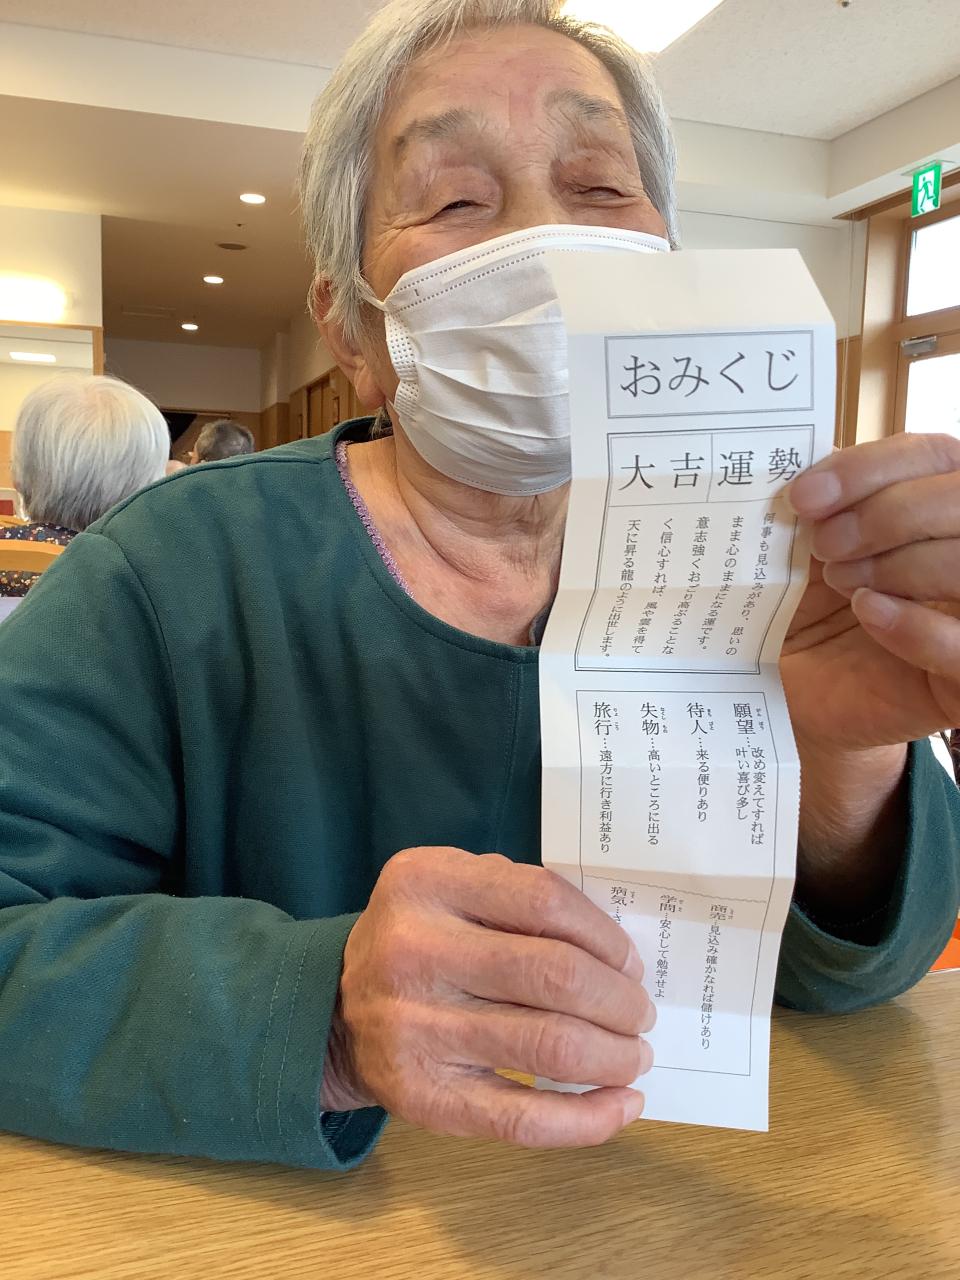 おみくじ
運勢
大吉
何事も見込みがあり、思いの
まま心のままになる運です。
意志強くおごり高ぶることな
く信心すれば、風や雲を得て
天に昇る龍のように出世します。
願望…改め変えてすれば
叶い喜び多し
待人…来る便りあり
失物…高いところに出る
旅行…遠方に行き利益あり
商売…見込み確かなれば儲けあり
学問…安心して勉学せよ
病気…さ